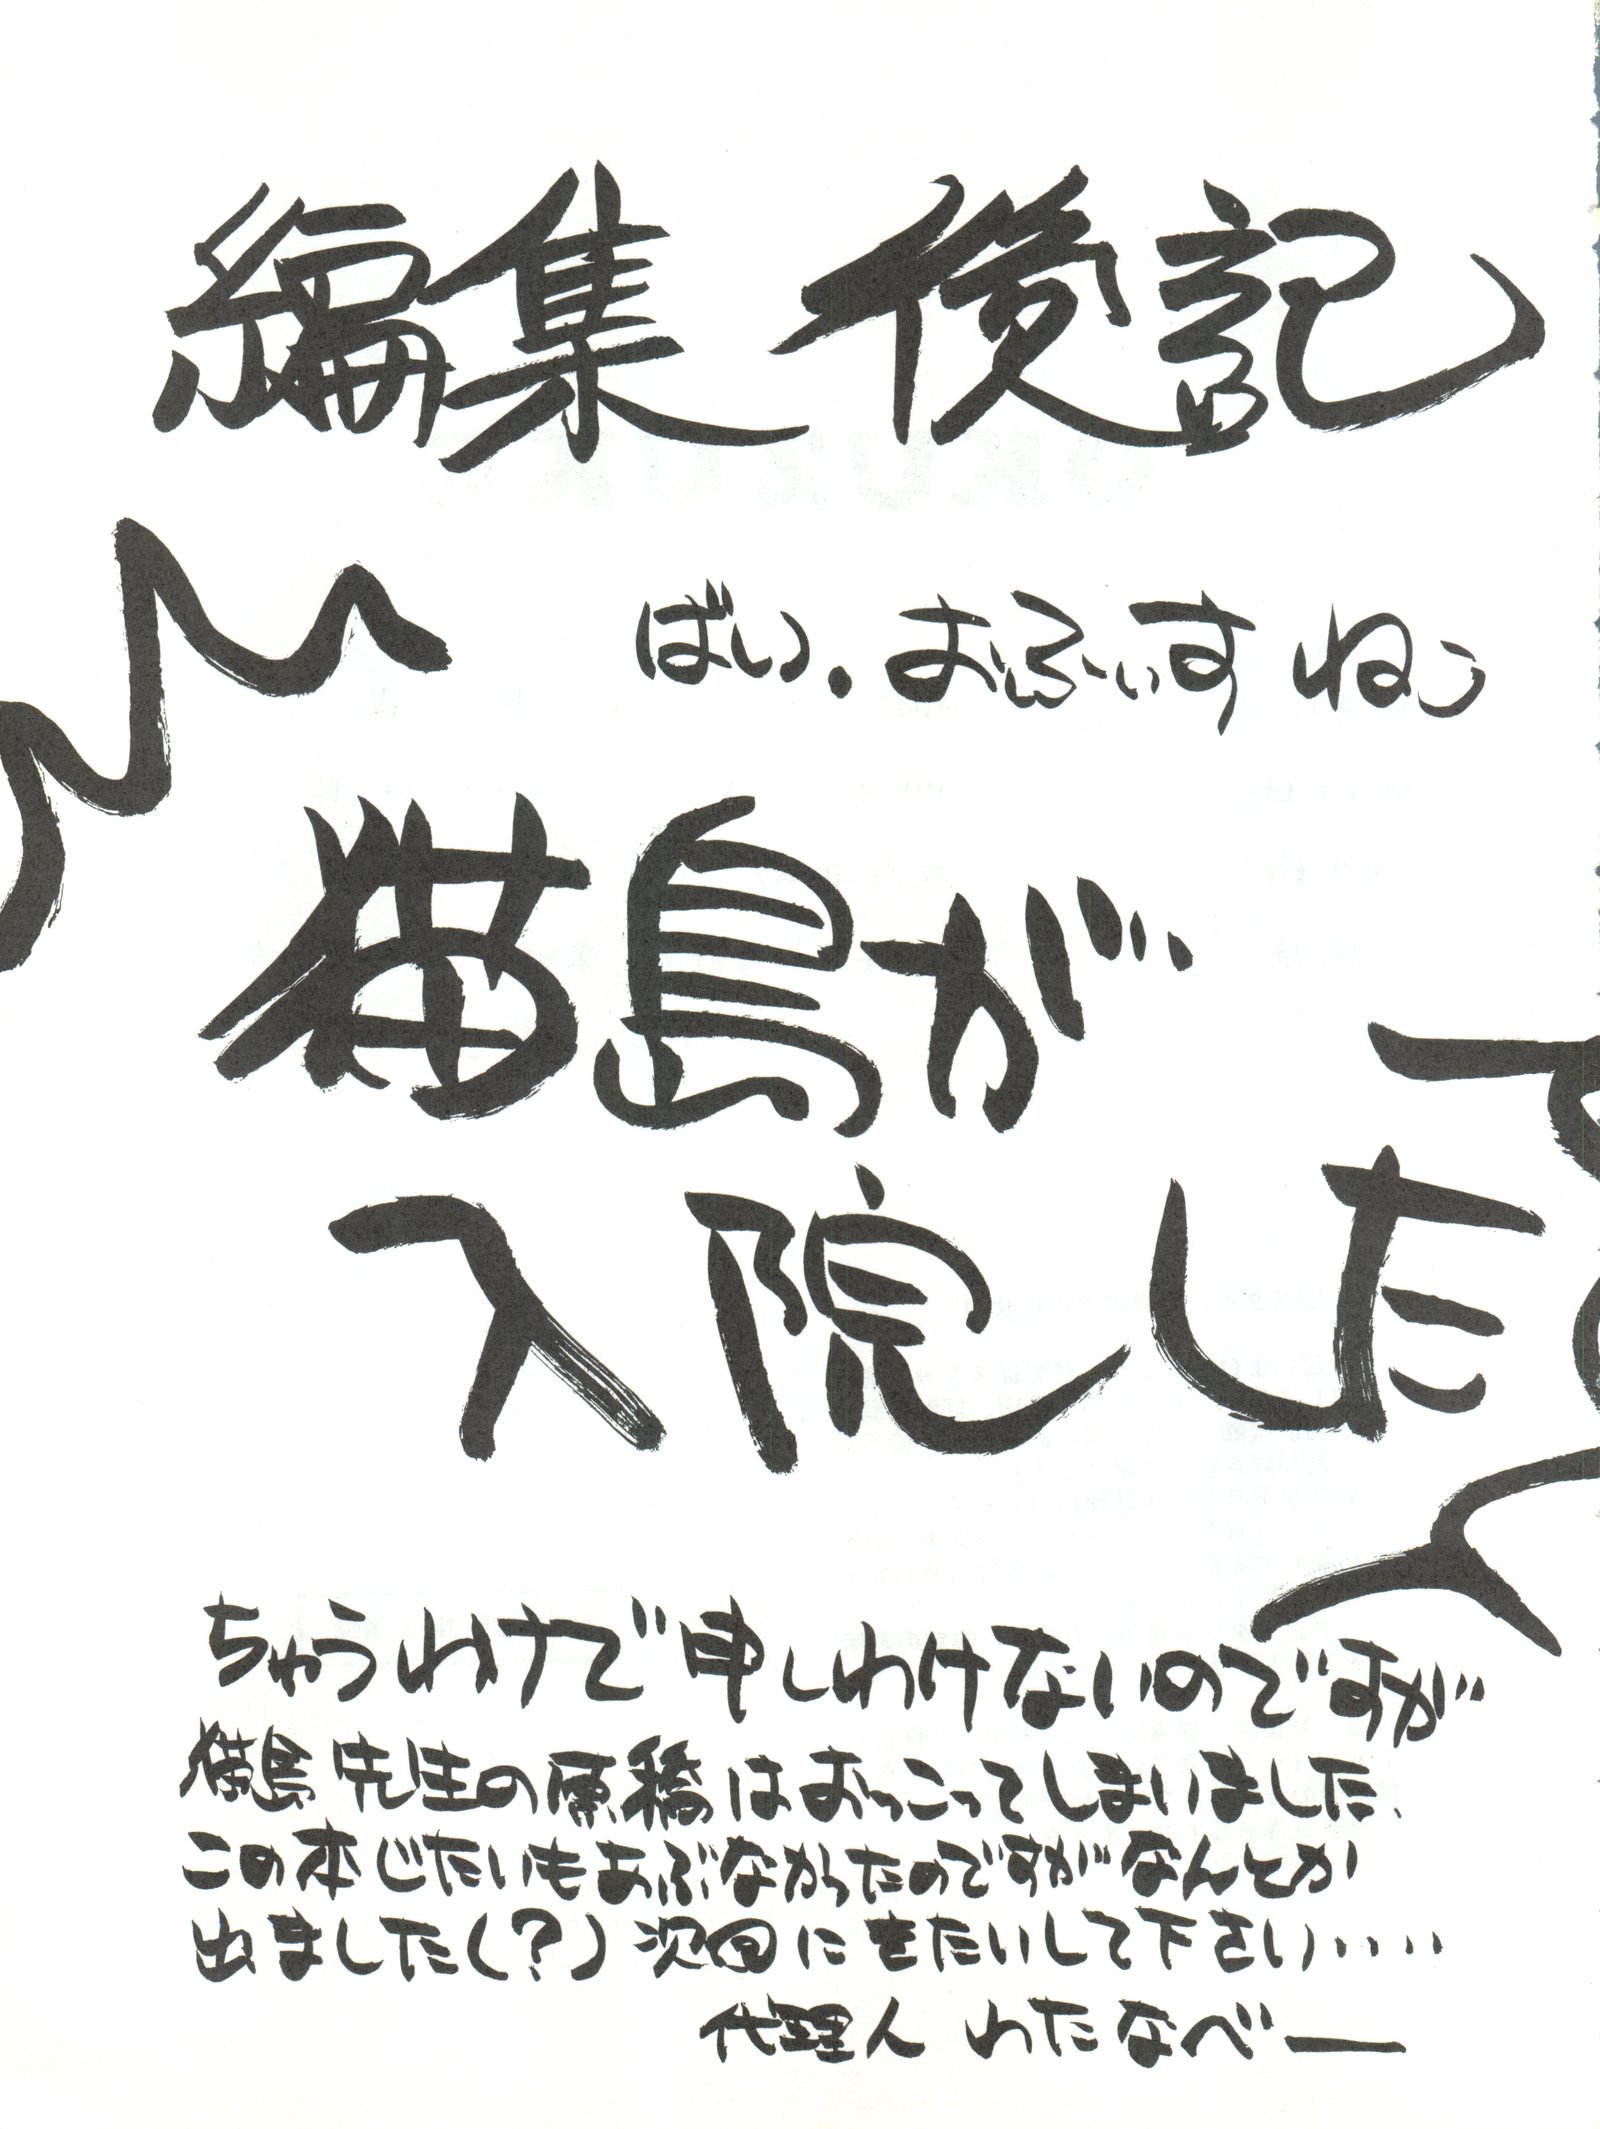 編集後記
ばい.おふぃす ねぅ
猫島が
入院した
ちゅうわけで申しわけないのですが
猫島先生の原稿はおっこってしまいました、
この本じたいもあぶなかったのですがなんとか
出ました(?)次回にきたいして下さい‥‥
代理人 わたなべー